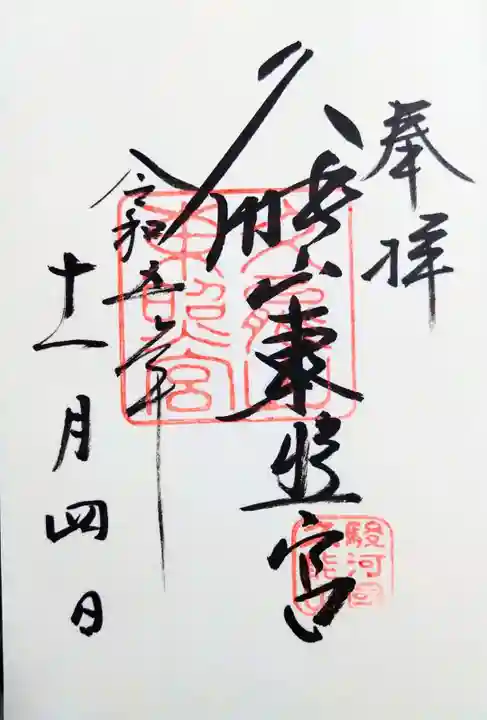 奉拝
久能山東照宮
令和五年
十一月四日
久能山
東照宮
駿河國
久能山